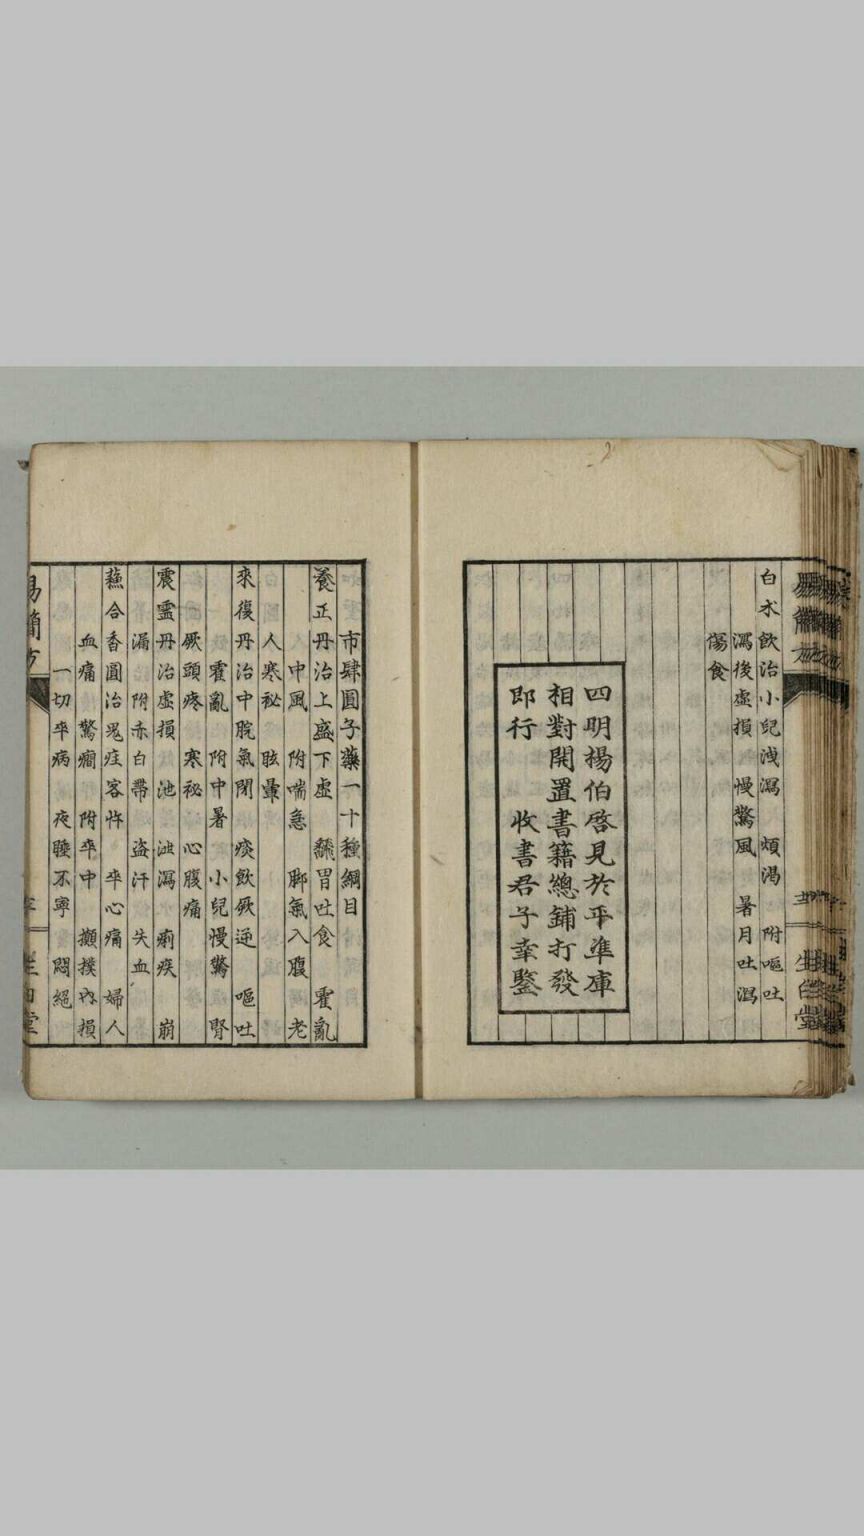 白水飲治小兒洩瀉 煩渴 附嘔吐
瀉後虛損 慢驚風 暑月吐瀉
傷食
四明楊伯啓見於平準庫
相對開置書籍總鋪打發
即行 收書君子幸鑒
市肆圓子藥一十種綱目
養正丹治上盛下虛 飜胃吐食 霍亂
中風 附喘急 腳氣入腹 老
人寒祕 眩暈
來復丹治中脘氣閉 痰飲厥逆 嘔吐
霍亂 附中暑 小兒慢驚 腎
厥頭疼 寒祕 心腹痛
震靈丹治虛損 泄瀉 痢疾 崩
漏 附赤白帶 盜汗 失血
蘇合香圓治鬼疰客忤 卒心痛 婦人
血痛 驚癇 附卒中 攧撲內損
一切卒病 夜睡不寧 悶絕
易簡方